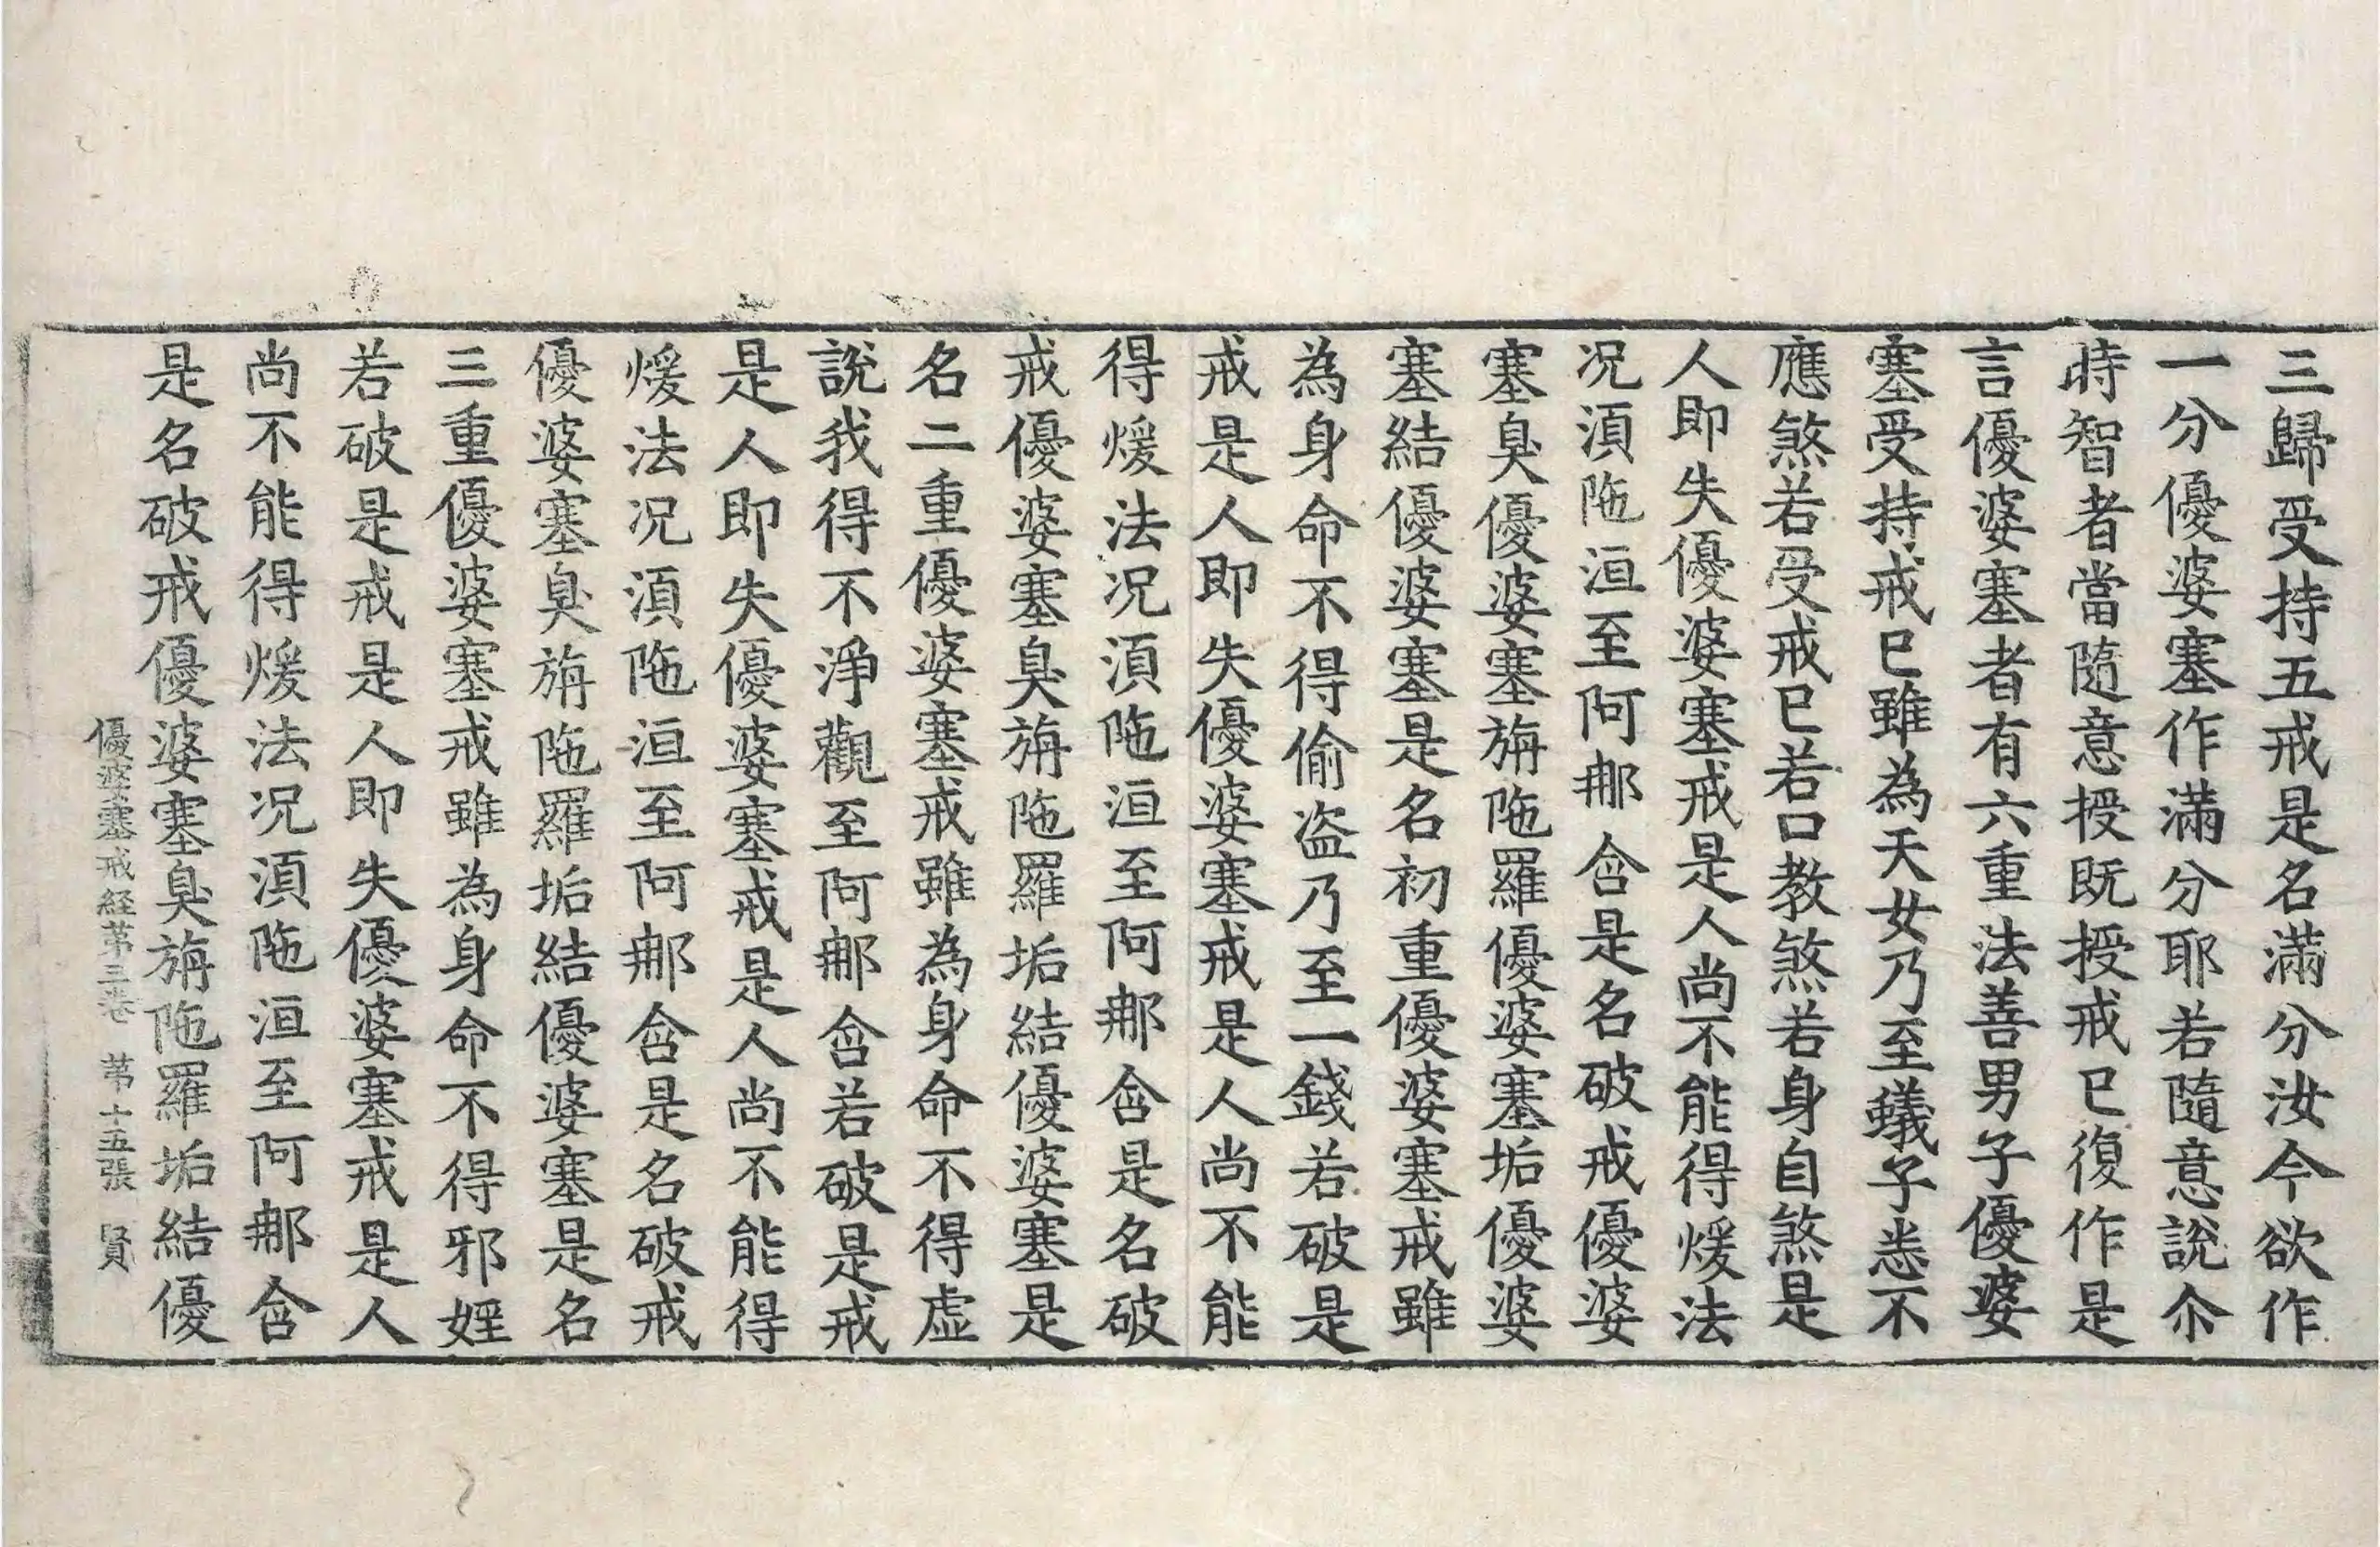 三歸受持五戒是名滿分汝今欲作
一分優婆塞作滿分耶若隨意說尒
時智者當隨意授既授戒已復作是
言優婆塞者有六重法善男子優婆
塞受持戒已雖為天女乃至蟻子悉不
應煞若受戒已若口教煞若身自煞是
人即失優婆塞戒是人尚不能得煖法
况湏陁洹至阿𨚗含是名破戒優婆
塞臭優婆塞旃陁羅優婆塞垢優婆
塞結優婆塞是名初重優婆塞戒雖
為身命不得偷盗乃至一錢若破是
戒是人即失優婆塞戒是人尚不能
得煖法况湏陁洹至阿𨚗含是名破
戒優婆塞臭旃陁羅垢結優婆塞是
名二重優婆塞戒雖為身命不得虛
說我得不淨觀至阿𨚗含若破是戒
是人即失優婆塞戒是人尚不能得
煖法况湏陁洹至阿𨚗含是名破戒
優婆塞臭旃陁羅垢結優婆塞是名
三重優婆塞戒雖為身命不得邪婬
若破是戒是人即失優婆塞戒是人
尚不能得煖法况湏陁洹至阿𨚗含
是名破戒優婆塞臭旃陁羅垢結優
優婆塞戒経苐三卷 苐十五張 賢